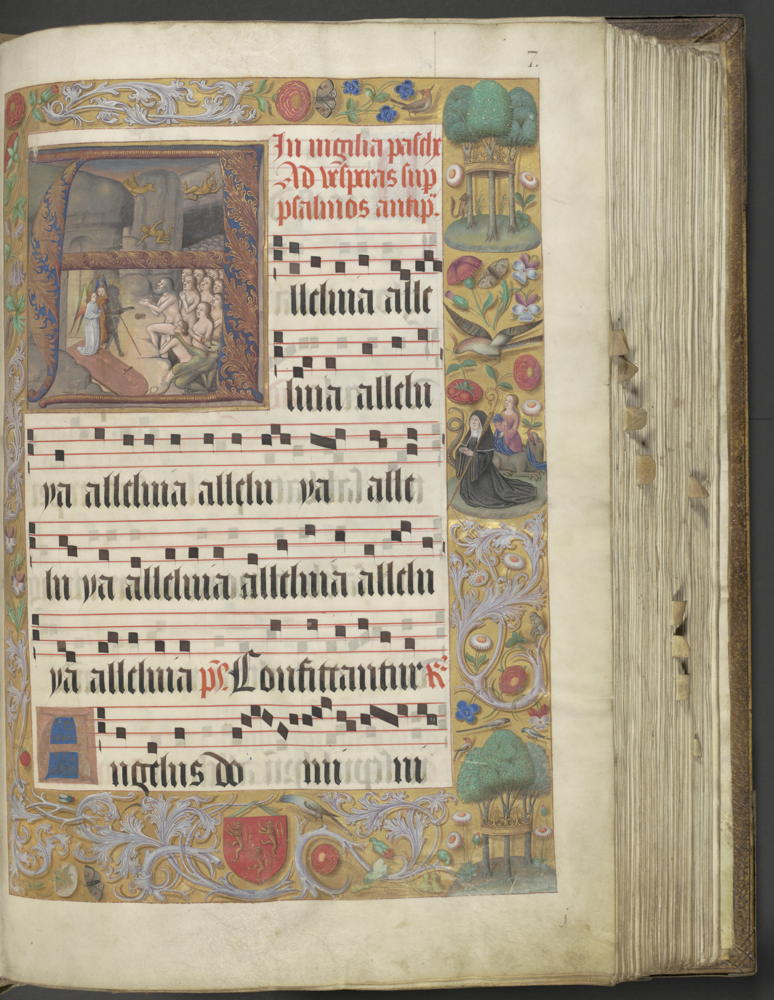 7.
In vigilia pasche
Ad vesperas sup
psalmos antip.
A lleluia alle
luia allelu
ya alleluia allelu ya alle
lu ya alleluia alleluia allelu
ya alleluia ps. Confitiantur
Angelus do mi ni